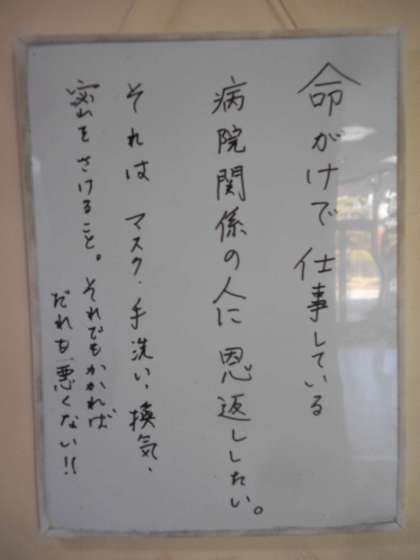 命がけで仕事している
病院関係の人に恩返ししたい。
それは マスク、手洗い、換気、
密をさけること。それでもかかれば
だれも悪くない!!